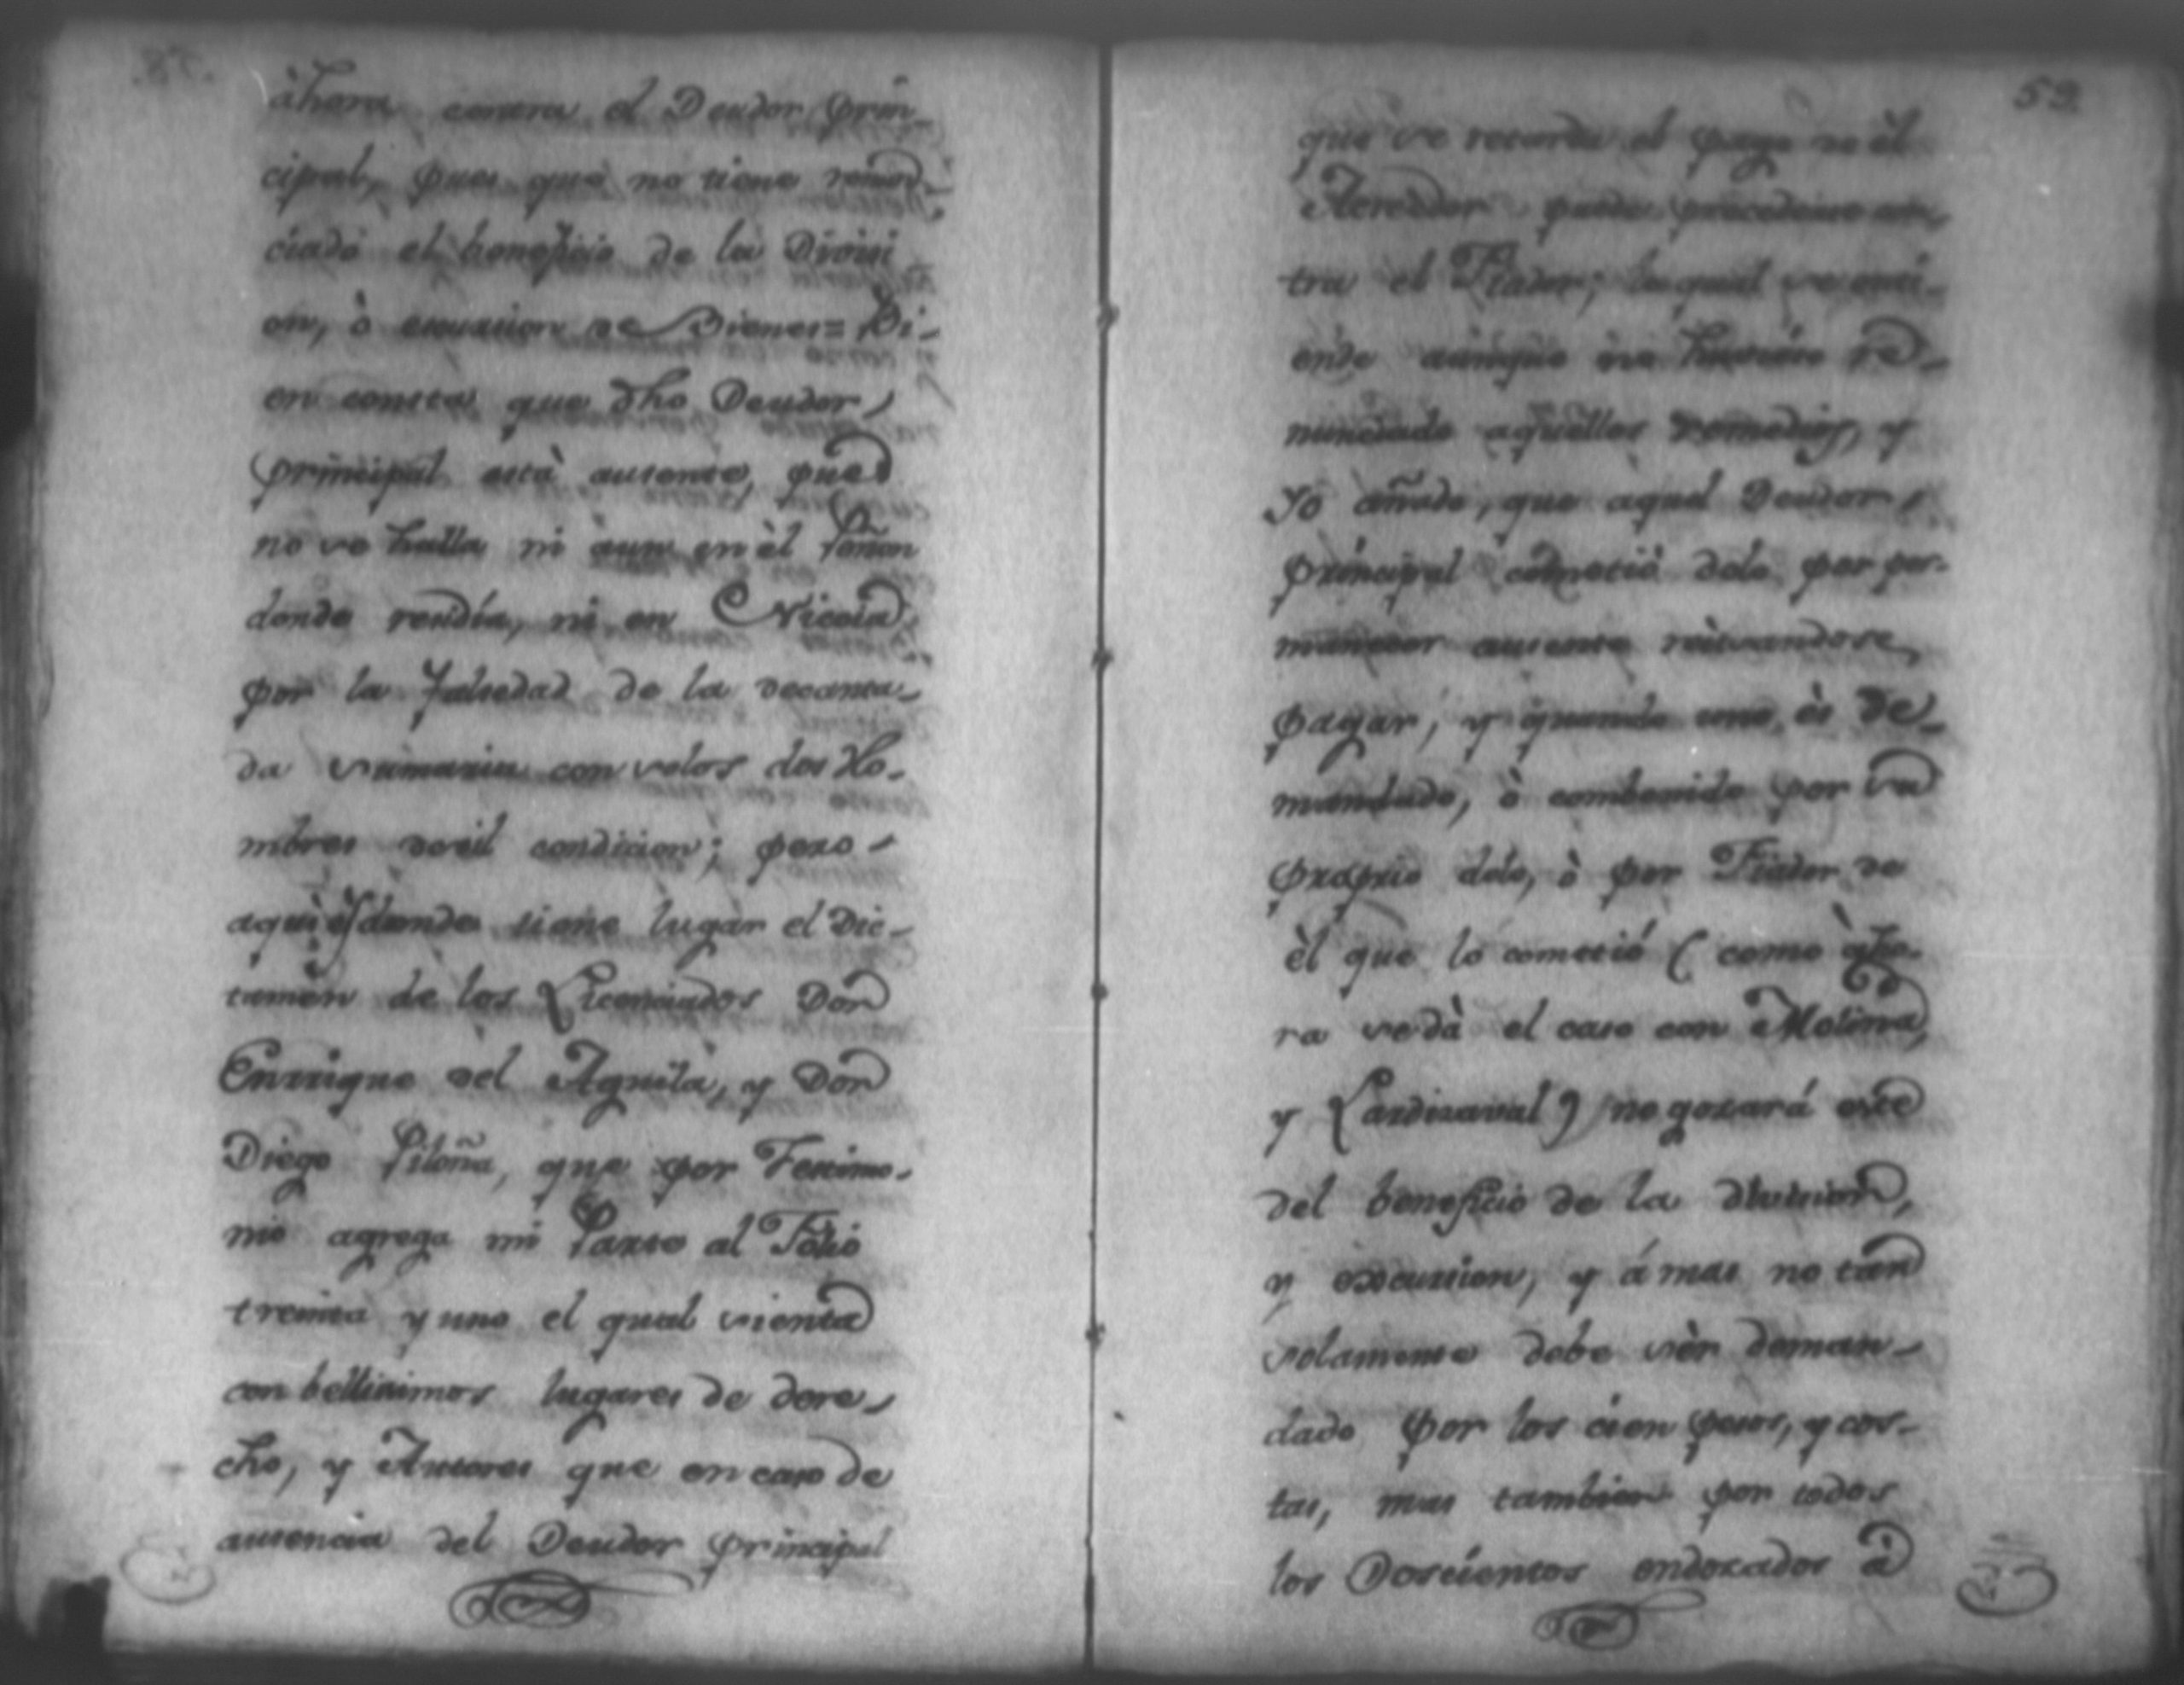 àhora contra el Deudor prin-
cipal, pues que no tiene renun-
ciado el beneficio de la Divisi
on, ò escussion de Bienes = Bi-
en consta que dho Deudor
principal está ausente, pues
no se halla ni aun en èl Peñon
donde residia, ni en Nicoia
por la falsedad de la decanta-
da sumaria con solos dos Ho-
mbres de vil condicion; pero
aquì es donde tiene lugar el Dic-
tamen de los Licenciados Don
Enrrique del Aguila, y Don
Diego Piloña, que por Testimo-
nio agrega mi Parte al Folio
treinta y uno el qual sienta
con bellisimos lugares de dere-
cho, y Autores que en caso de
ausencia del Deudor principal
59
que se retarda el pago de èl
Acreedor puede procederse con-
tra el Fiador; lo qual se enti-
ende aunque no huviese re-
nunciado aquellos remedios, y
Yo añado, que aquel Deudor
principal cometió dolo por per-
manecer ausente reusandose
pagar; y quando uno és de-
mandado, ò combenido por su
proprio dolo, ò por Fiador de
èl que lo cometió (como àho-
ra se dà el caso con Molina,
y Lardizaval) no gozará este
del beneficio de la division,
y excussion, y á mas no tan
solamente debe sèr deman-
dado por los cien pesos, y cos-
tas, mas tambien por todos
los Doscientos endozados à